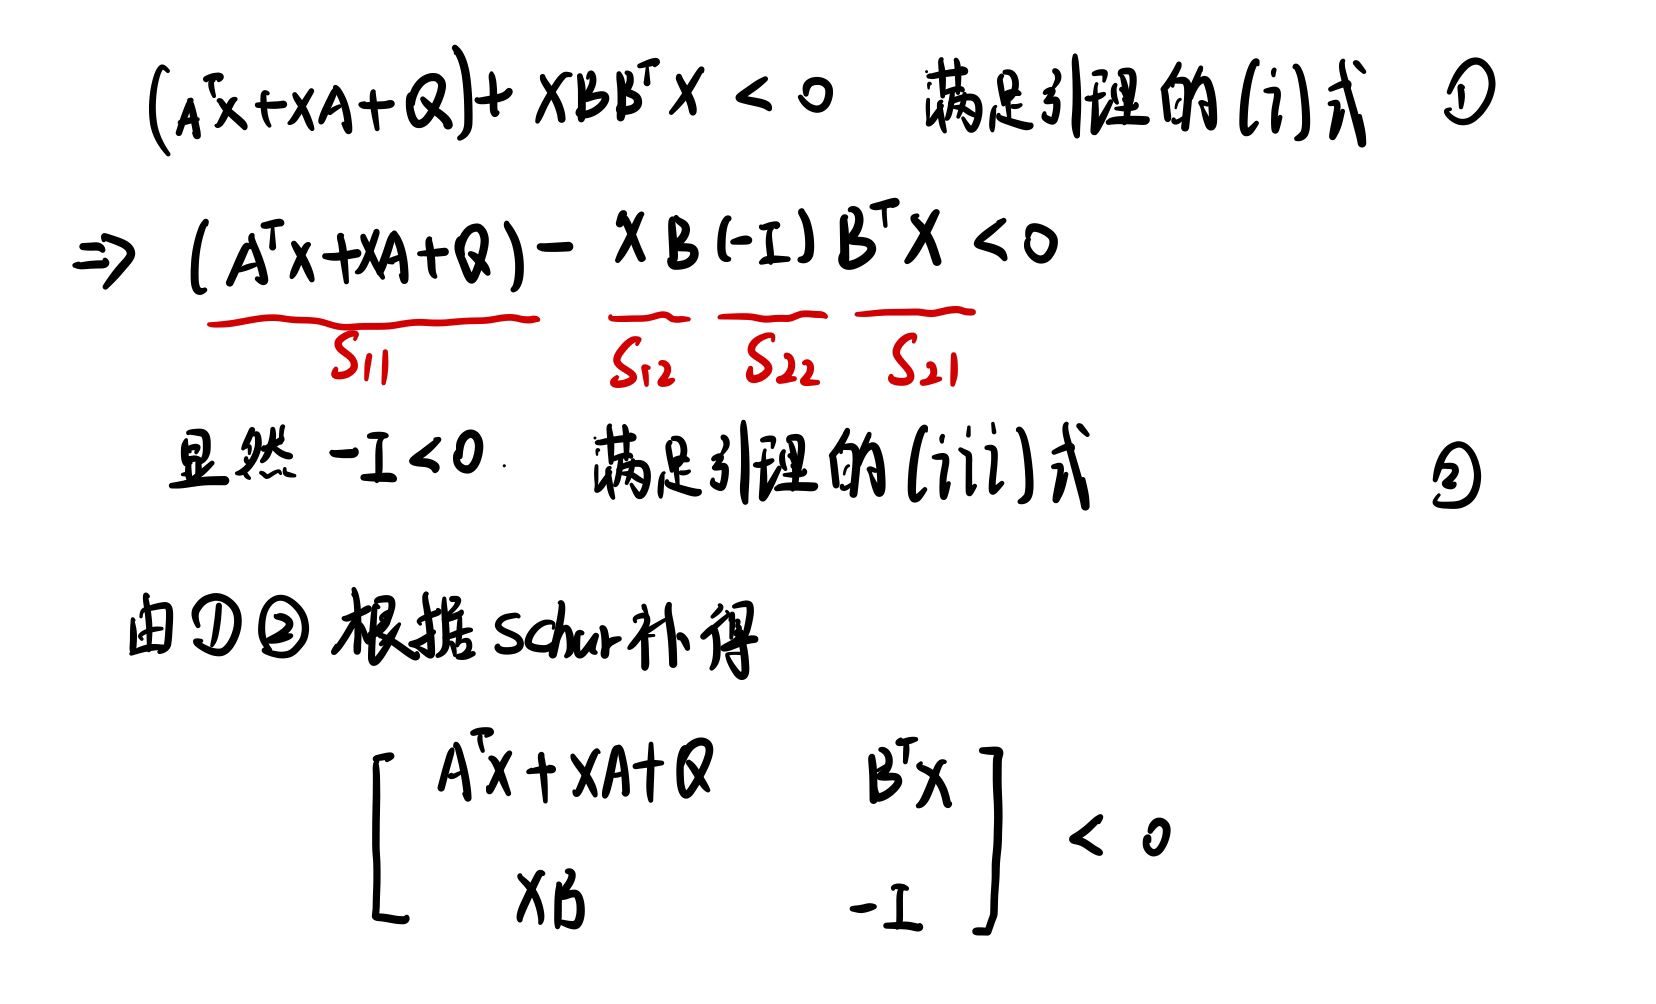 (AᵀX+XA+Q)+ XBBᵀX < 0 满足引理的(i)式 ①
⇒ (AᵀX+XA+Q)- XB(-I)BᵀX <0
S₁₁ S₁₂ S₂₂ S₂₁
显然 -I<0. 满足引理的(iii)式 ②
由①②根据Schur补得
[ AᵀX+XA+Q BᵀX
XB -I ] < 0